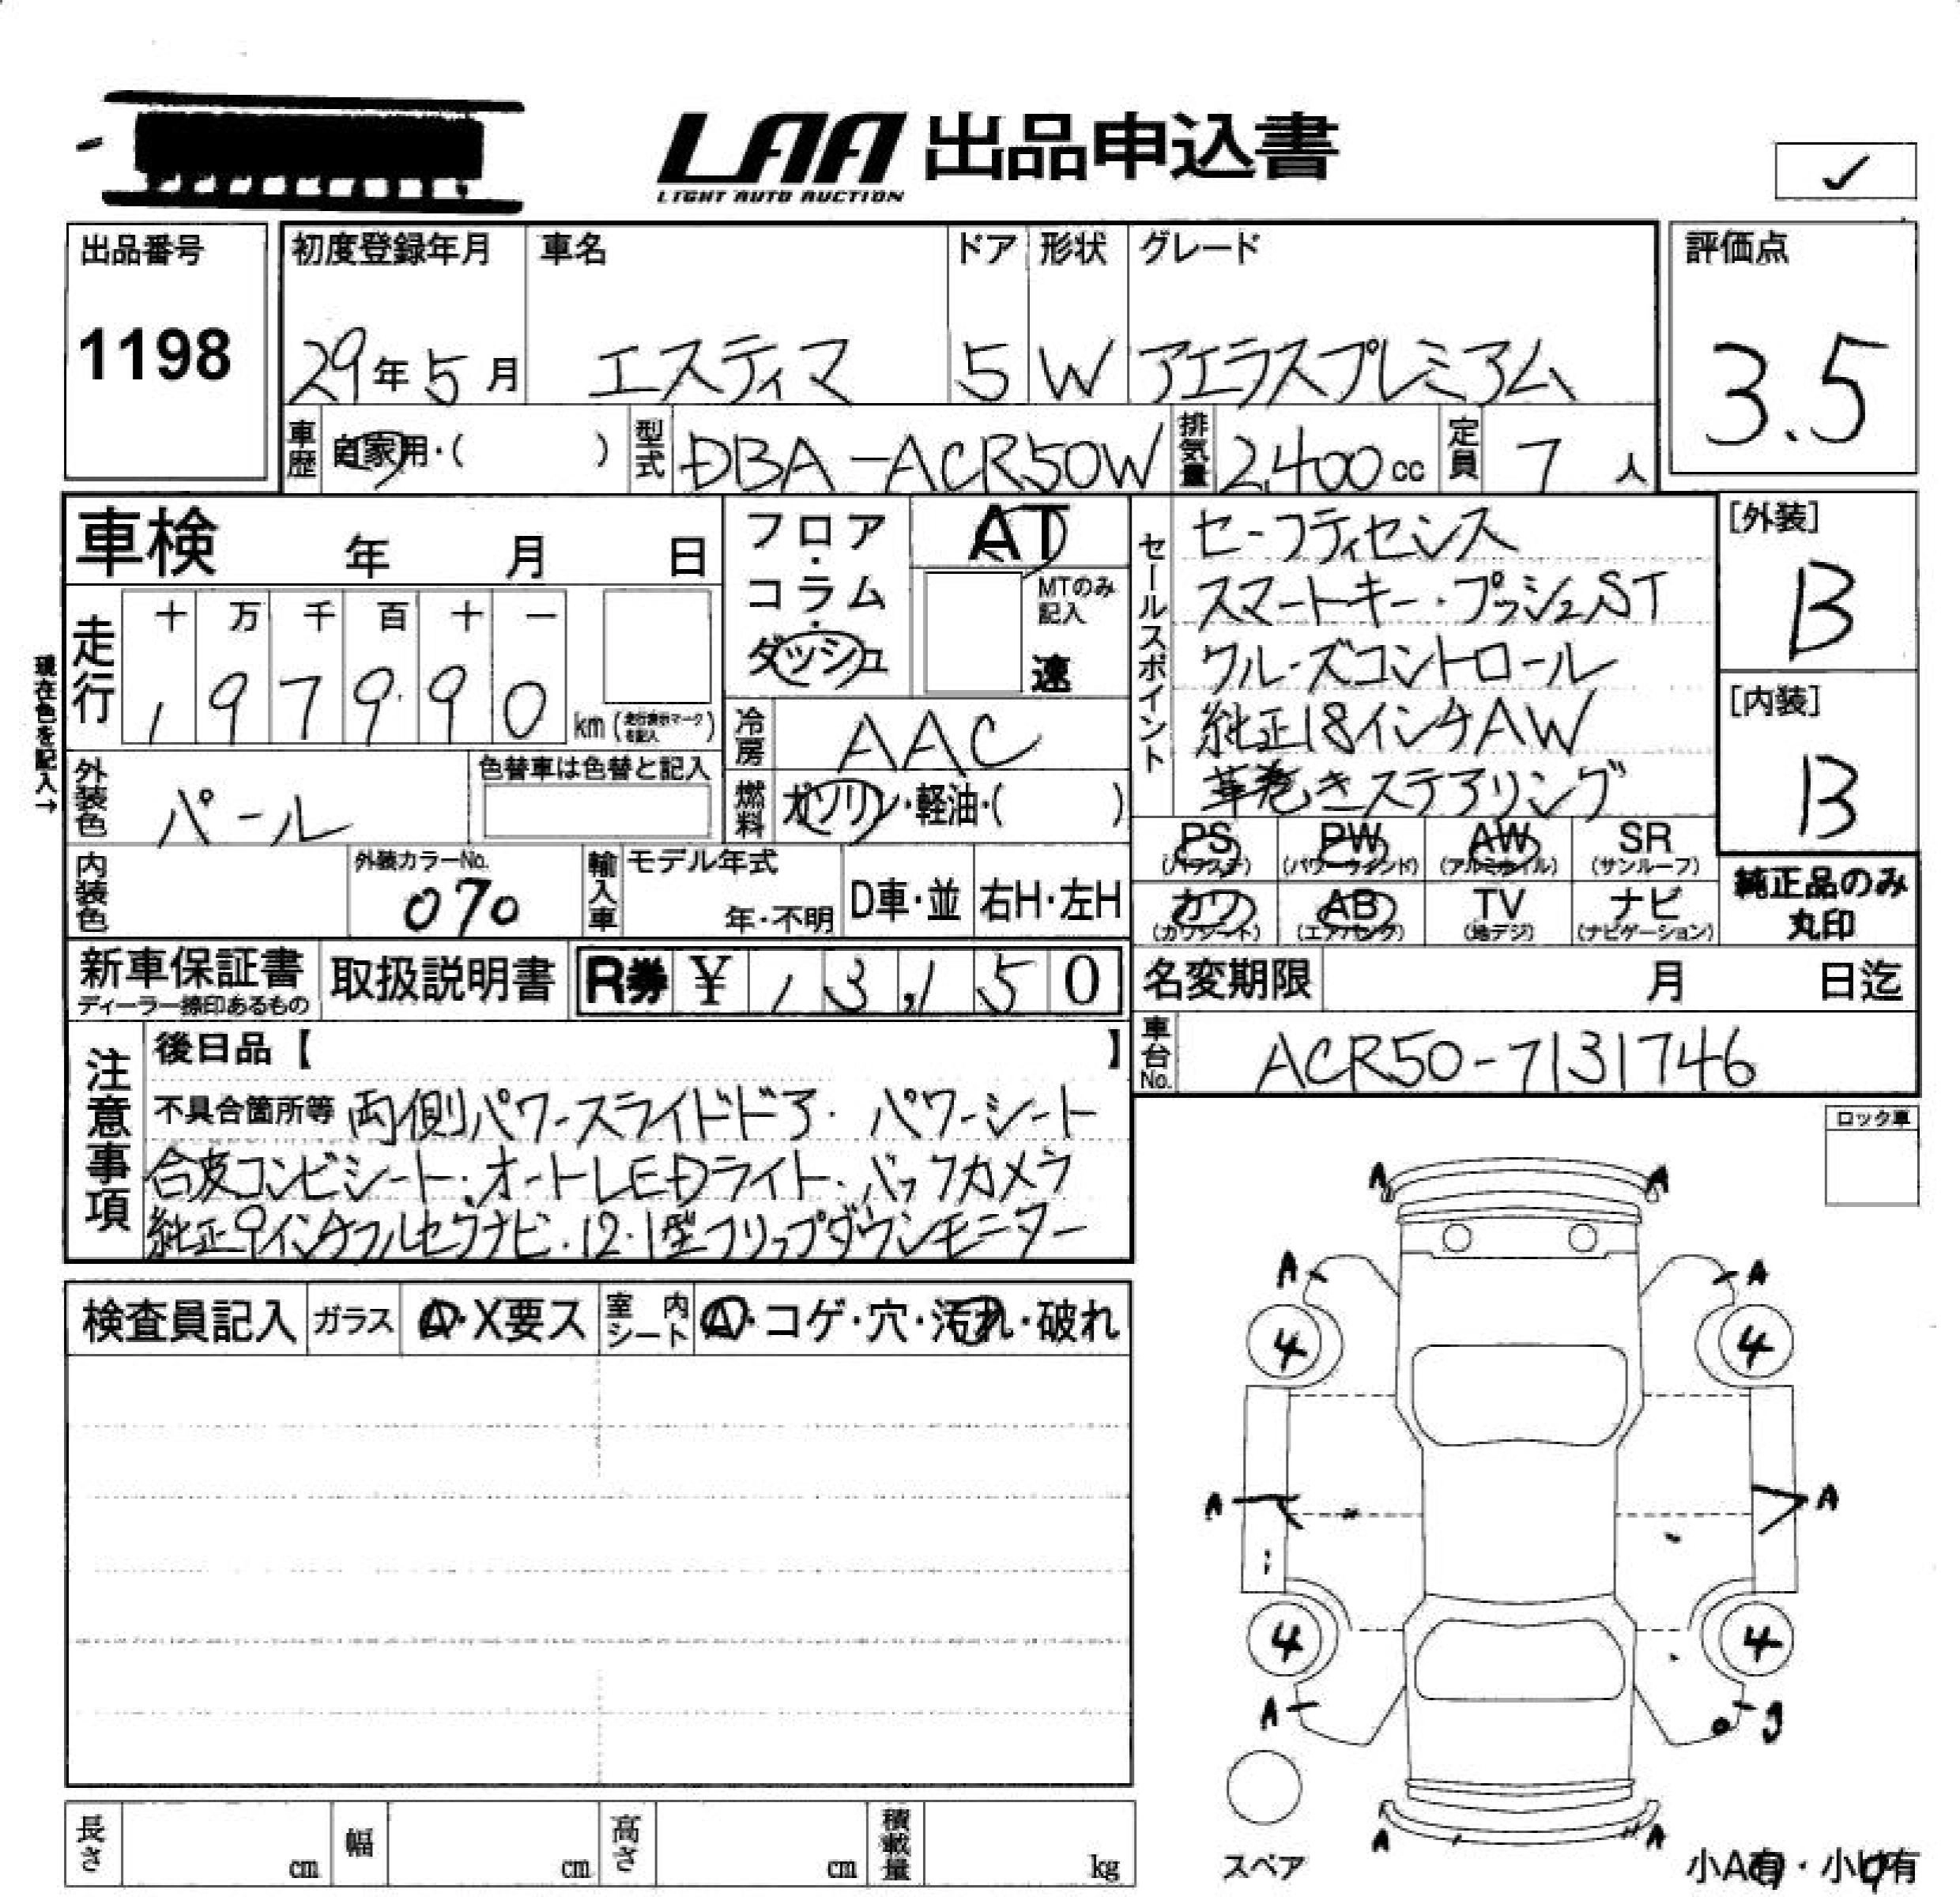 LAA 出品申込書
LIGHT AUTO AUCTION
✓
出品番号
1198
初度登録年月 車名 ドア 形状 グレード
29年5月 エスティマ 5 W アエラスプレミアム
評価点
3.5
車歴 自家用・( ) 型式 DBA-ACR50W 排気量 2,400cc 定員 7人
車検 年 月 日
フロア・コラム・ダッシュ
AT
MTのみ記入
速
セールスポイント
セーフティセンス
スマートキー・プッシュST
クルーズコントロール
純正18インチAW
革巻きステアリング
[外装]
B
[内装]
B
現在色を記入→
走行 十 万 千 百 十 一
197990 km(走行表示マークを記入)
冷房 AAC
外装色 パール 色替車は色替と記入
燃料 ガソリン・軽油・( )
PS PW AW SR
(パワステ) (パワーウィンド) (アルミホイル) (サンルーフ)
カワ AB TV ナビ
(カワシート) (エアバッグ) (地デジ) (ナビゲーション)
純正品のみ丸印
内装色 外装カラーNo. 070
輸入車 モデル年式 年・不明 D車・並 右H・左H
新車保証書 取扱説明書 R券 ¥ 13,150
ディーラー捺印あるもの
名変期限 月 日迄
車台No. ACR50-7131746
注意事項
後日品【 】
不具合箇所等 両側パワースライドドア・パワーシート
合皮コンビシート・オートLEDライト・バックカメラ
純正9インチフルセグナビ・12.1型フリップダウンモニター
ロック車
検査員記入 ガラス A・X要ス 室内シート A・コゲ・穴・汚れ・破れ
A A
A A
4 4
A A
4 4
A
A A
スペア
小A有・小U有
長さ cm 幅 cm 高さ cm 積載量 kg